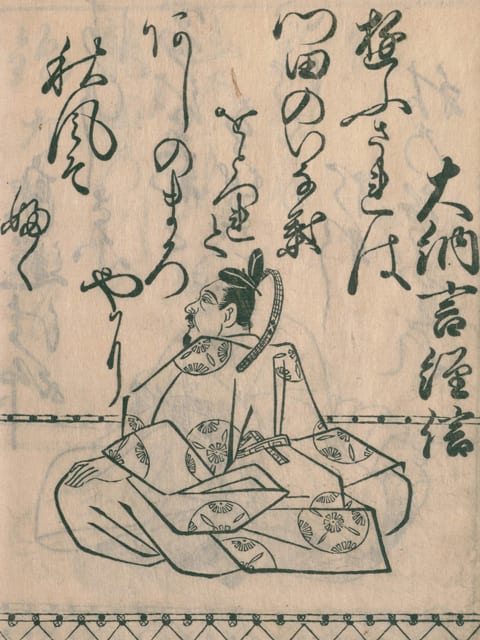 大納言經信
ゆふされは
門田のいな葉
をとつれて
あしのまろ
やに
秋風そ
ふく